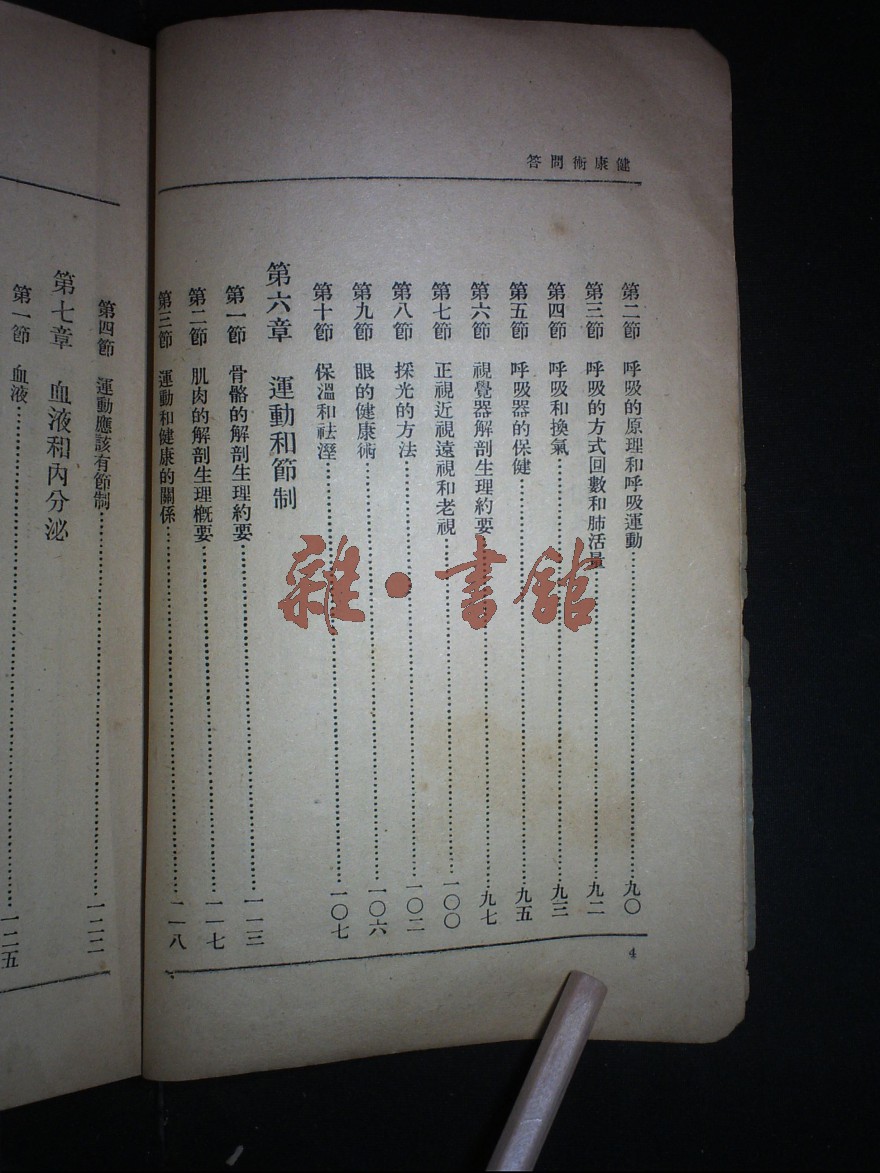 健康術問答
第二節 呼吸的原理和呼吸運動……九〇
第三節 呼吸的方式回數和肺活量……九二
第四節 呼吸和換氣……九三
第五節 呼吸器的保健……九五
第六節 視覺器解剖生理約要……九七
第七節 正視近視遠視和老視……一〇〇
第八節 採光的方法……一〇二
第九節 眼的健康術……一〇六
第十節 保溫和祛溼……一〇七
第六章 運動和節制
第一節 骨骼的解剖生理約要……一一三
第二節 肌肉的解剖生理概要……一一七
第三節 運動和健康的關係……二一八
4
第四節 運動應該有節制……一二二
第七章 血液和內分泌
第一節 血液……一二五
雜·書館